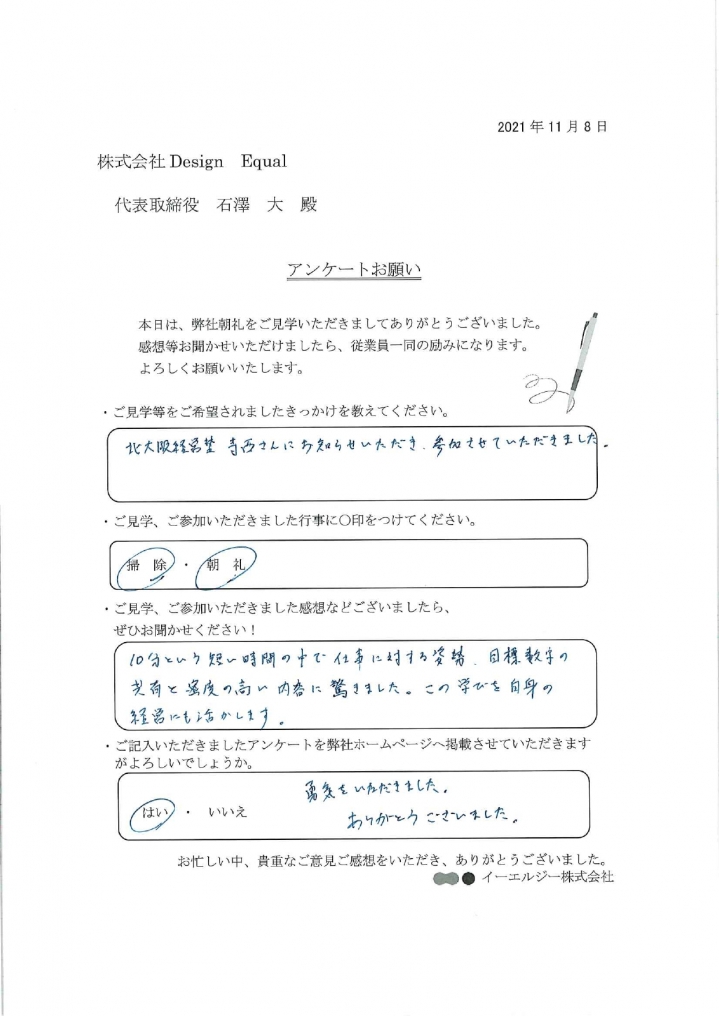 2021 年 11 月 8 日
株式会社 Design　Equal
代表取締役　石澤　大　殿
アンケートお願い
本日は、弊社朝礼をご見学いただきましてありがとうございました。
感想等お聞かせいただけましたら、従業員一同の励みになります。
よろしくお願いいたします。
・ご見学等をご希望されましたきっかけを教えてください。
北大阪経営塾 寺西さんにお知らせいただき、参加させていただきました。
・ご見学、ご参加いただきました行事に〇印をつけてください。
掃　除　・　朝　礼
・ご見学、ご参加いただきました感想などございましたら、
ぜひお聞かせください！
10分という短い時間の中で仕事に対する姿勢、目標数字の
共有と密度の高い内容に驚きました。この学びを自身の
経営にも活かします。
・ご記入いただきましたアンケートを弊社ホームページへ掲載させていただきます
がよろしいでしょうか。
勇気をいただきました。
はい　・　いいえ
ありがとうございました。
お忙しい中、貴重なご意見ご感想をいただき、ありがとうございました。
イーエルジー株式会社